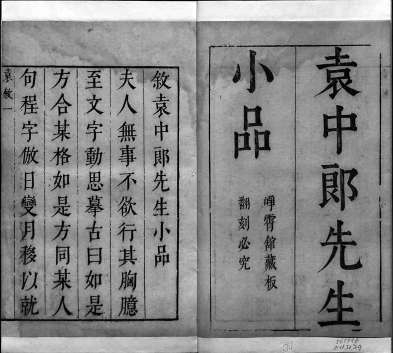 袁中郎先生
小品
崢霄館藏板
翻刻必究
敘袁中郎先生小品
夫人無事不欲行其胸臆
至文字動思摹古曰如是
方合某格如是方同某人
句程字倣日變月移以就
袁敘 一